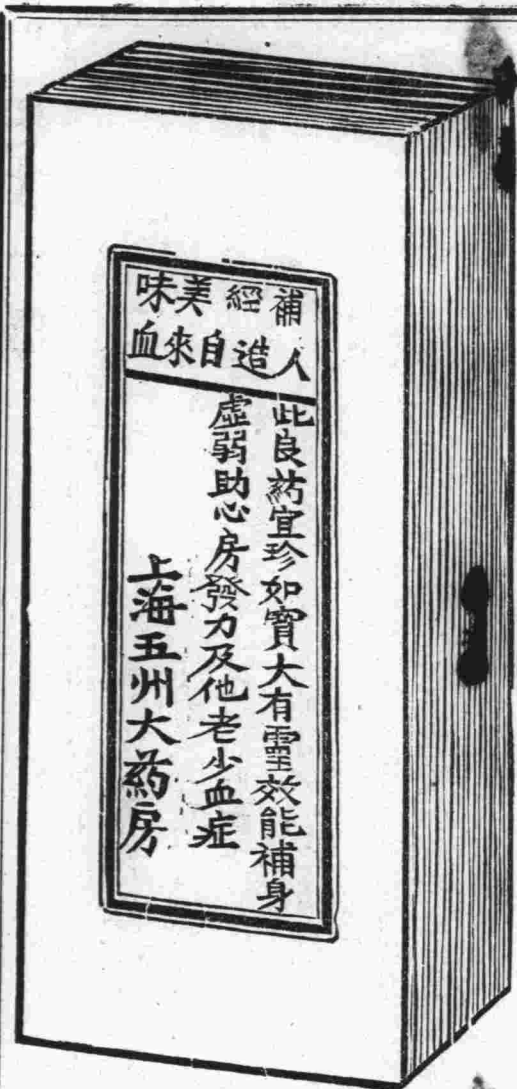 補經美味
人造自來血
此良葯宜珍如寶大有靈效能補身
虛弱助心房發力及他老少血症
上海五州大葯房